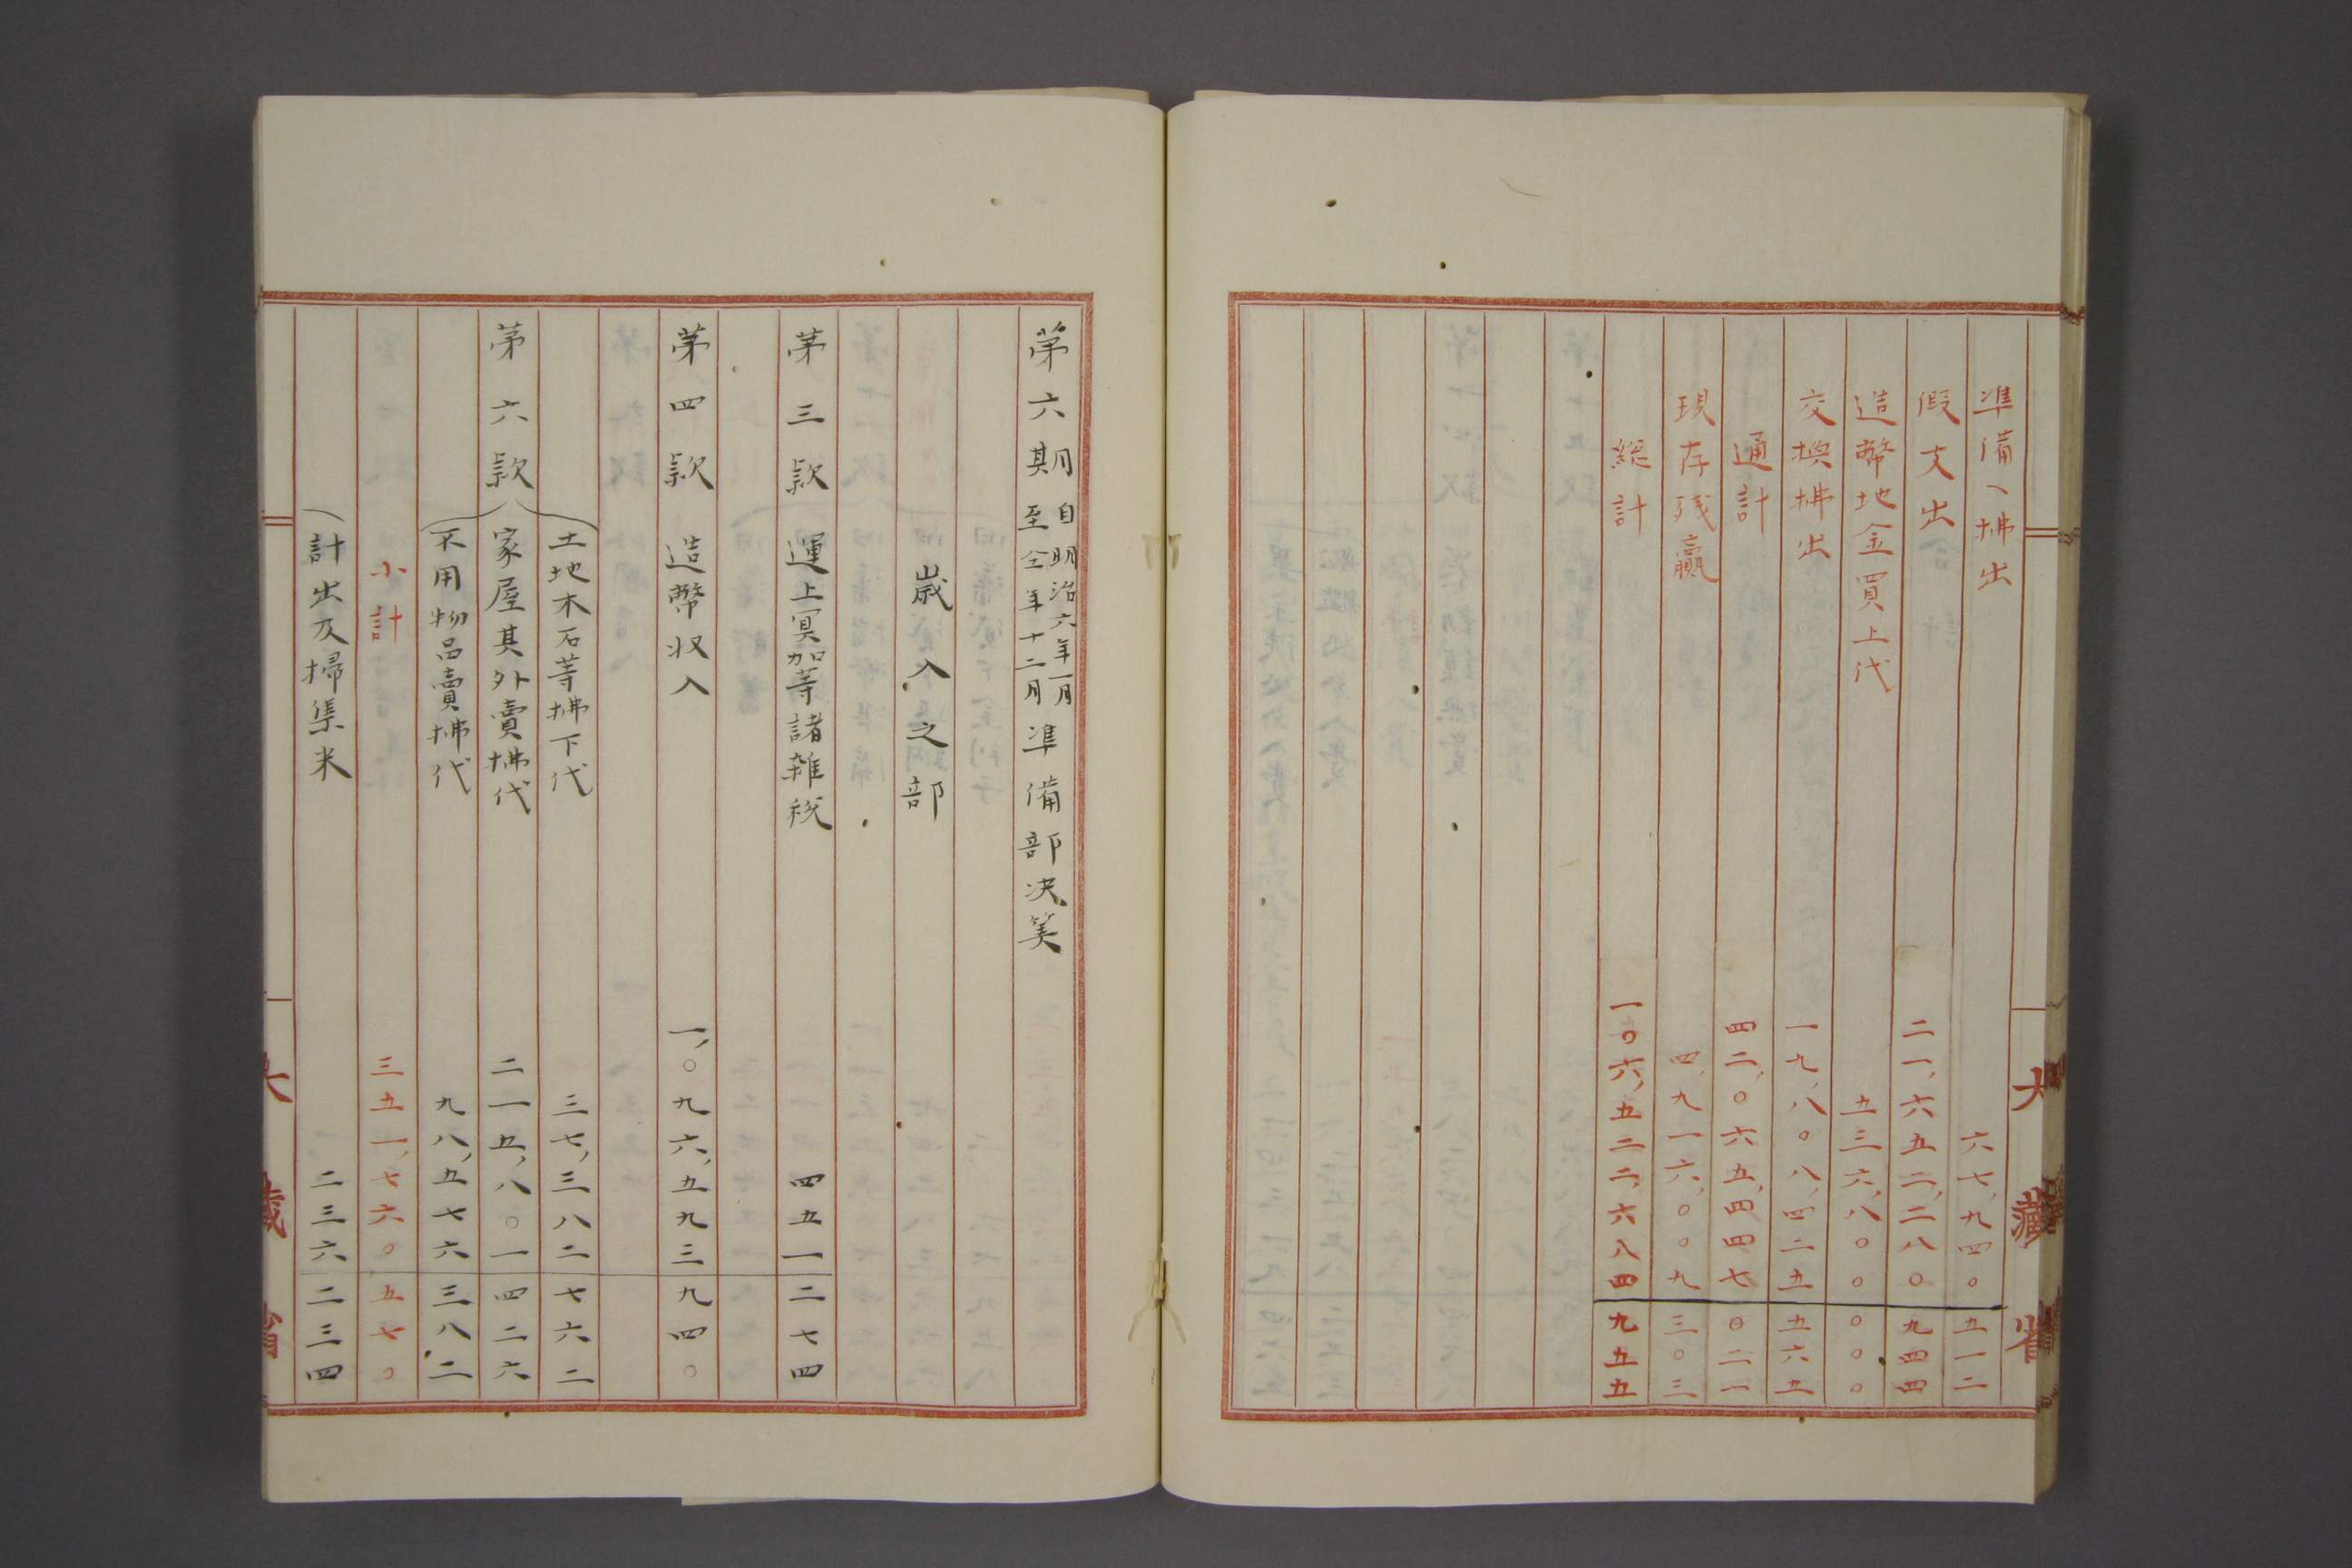 準備ヘ拂出 六七,九四〇 五一二
假支出 二一,六五二,二八〇 九四四
造幣地金買上代 五三六,八〇〇 〇〇〇
交換拂出 一九,八〇八,四二五 五六五
通計 四二,〇六五,四四七 〇二一
現存残贏 四,九一六,〇〇九 三〇三
総計 一〇六,五二二,六八四 九五五
大藏省
第六期 自明治六年一月 至仝年十二月 準備部決筭
歳入之部
第三款 運上冥加等諸雑税 四五一 二七四
第四款 造幣収入 一,〇九六,五九三 九四〇
土地木石等拂下代 三七,三八二 七六二
第六款 家屋其外賣拂代 二一五,八〇一 四二六
不用物品賣拂代 九八,五七六 三八二
小計 三五一,七六〇 五七〇
計出及掃集米 二三六 二三四
大藏省